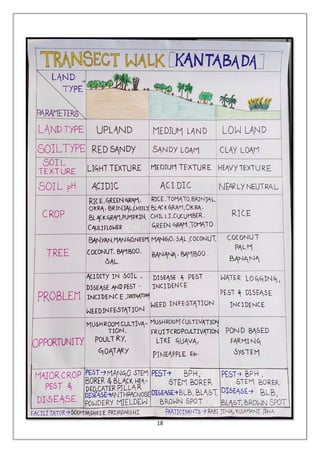 TRANSECT WALK [KANTABADA]
LAND TYPE
PARAMETERS
LAND TYPE UPLAND MEDIUM LAND LOW LAND
SOIL TYPE RED SANDY SANDY LOAM CLAY LOAM
SOIL TEXTURE LIGHT TEXTURE MEDIUM TEXTURE HEAVY TEXTURE
SOIL pH ACIDIC ACIDIC NEARLY NEUTRAL
CROP
RICE, GREEN GRAM,
OKRA, BRINJAL, CHILLY,
BLACK GRAM, PUMPKIN,
CAULIFLOWER
RICE, TOMATO, BRINJAL,
BLACK GRAM, OKRA,
CHILLI, CUCUMBER,
GREEN GRAM, TOMATO
RICE
TREE
BANYAN, MANGO, NEEM,
COCONUT, BAMBOO,
SAL
MANGO, SAL, COCONUT,
BANANA, BAMBOO
COCONUT
PALM
BANANA
PROBLEM
ACIDITY IN SOIL,
DISEASE AND PEST -
INCIDENCE, IRRIGATION
WEED INFESTATION
DISEASE & PEST
INCIDENCE
WEED INFESTATION
WATER LOGGING,
PEST & DISEASE
INCIDENCE
OPPORTUNITY
MUSHROOM CULTIVA-
TION,
POULTRY,
GOATARY
MUSHROOM CULTIVATION
FRUIT CROP CULTIVATION
LIKE GUAVA,
PINEAPPLE Etc.
POND BASED
FARMING
SYSTEM
MAJOR CROP
PEST &
DISEASE
PEST→MANGO STEM
BORER & BLACK HEA-
DED CATERPILLAR
DISEASE→ANTHRACNOSE
POWDERY MIELDEW
PEST→ BPH,
STEM BORER
DISEASE→BLB, BLAST,
BROWN SPOT
PEST→ BPH,
STEM BORER
DISEASE→ BLB,
BLAST, BROWN SPOT
FACILITATOR→SOUMYASHREE PRIYADARSHI PARTICIPANTS→RABI JENA, KISAMANI JENA
18